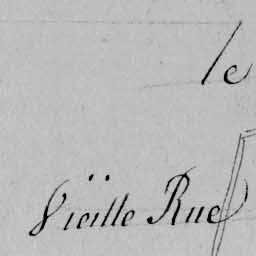 le
Vieille Rue